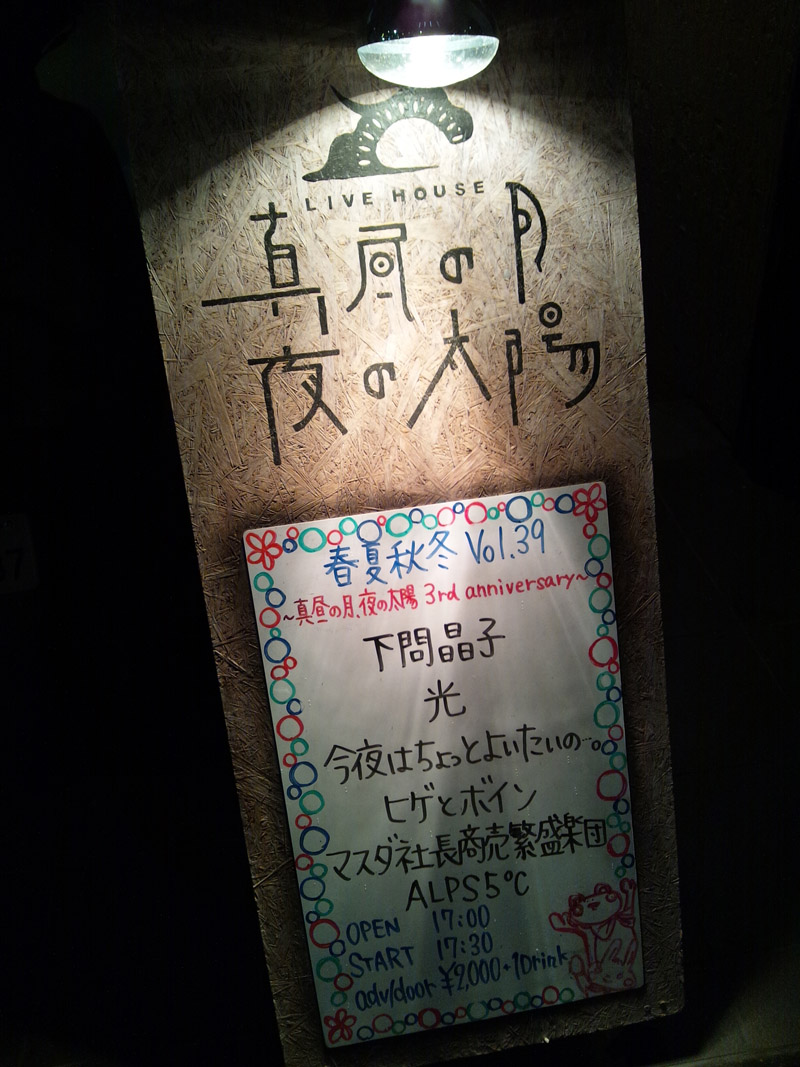 LIVE HOUSE
真昼の月
夜の太陽
春夏秋冬 Vol.39
~真昼の月、夜の太陽 3rd anniversary~
下問晶子
光
今夜はちょっとよいたいの…。
ヒゲとボイン
マスダ社長商売繁盛楽団
ALPS5℃
OPEN 17:00
START 17:30
adv/door ¥2,000+1Drink